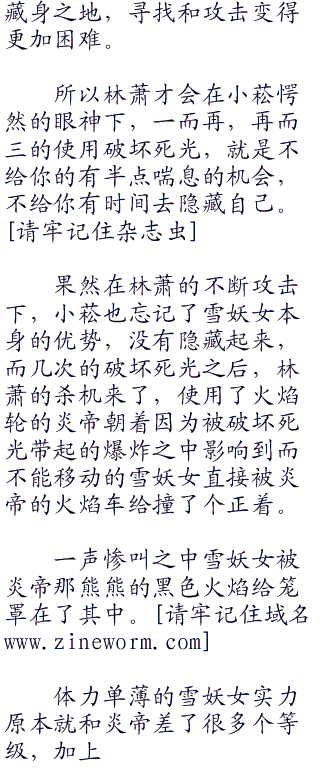 藏身之地，寻找和攻击变得
更加困难。
所以林萧才会在小菘愕
然的眼神下，一而再，再而
三的使用破坏死光，就是不
给你的有半点喘息的机会，
不给你有时间去隐藏自己。
[请牢记住杂志虫]
果然在林萧的不断攻击
下，小菘也忘记了雪妖女本
身的优势，没有隐藏起来，
而几次的破坏死光之后，林
萧的杀机来了，使用了火焰
轮的炎帝朝着因为被破坏死
光带起的爆炸之中影响到而
不能移动的雪妖女直接被炎
帝的火焰车给撞了个正着。
一声惨叫之中雪妖女被
炎帝那熊熊的黑色火焰给笼
罩在了其中。[请牢记住域名
www.zineworm.com]
体力单薄的雪妖女实力
原本就和炎帝差了很多个等
级，加上